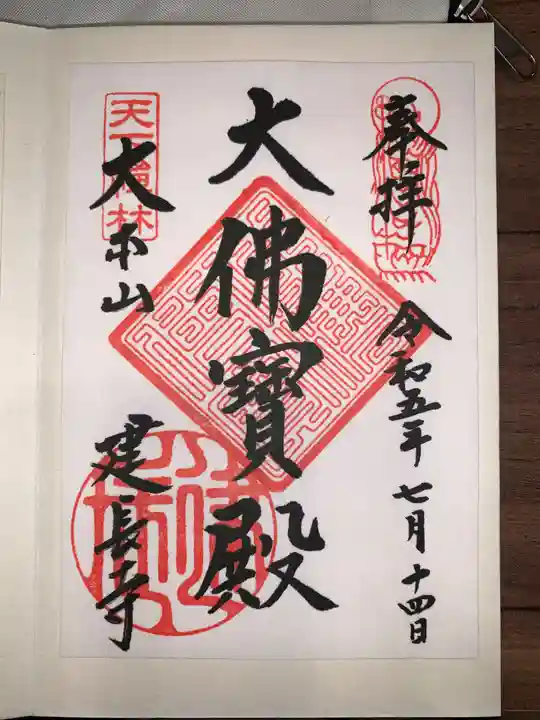 奉拜
令和五年七月十四日
大佛寶殿
天下禅林
大本山
建長寺